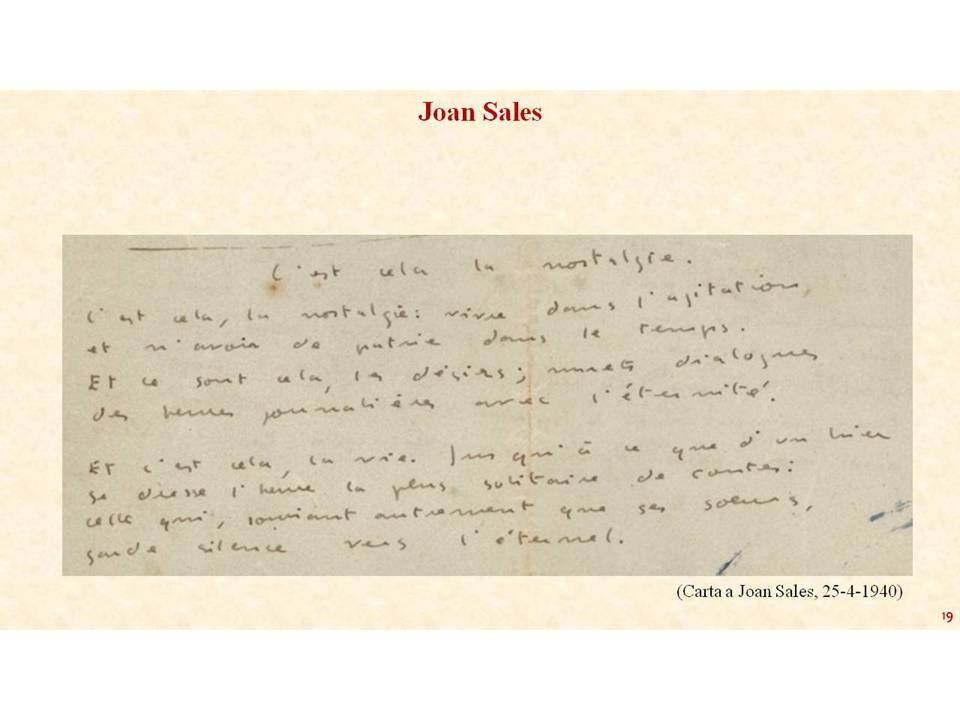 Joan Sales
C'est cela la nostalgie.
C'est cela, la nostalgie: vivre dans l'agitation
et n'avoir de patrie dans le temps.
Et ce sont cela, les désirs; muets dialogues
des heures journalières avec l'éternité.
Et c'est cela, la vie. Jusqu'à ce que d'un hier
se dresse l'heure la plus solitaire de toutes:
celle qui, souriant autrement que ses soeurs,
garde silence vers l'éternel.
(Carta a Joan Sales, 25-4-1940)
19